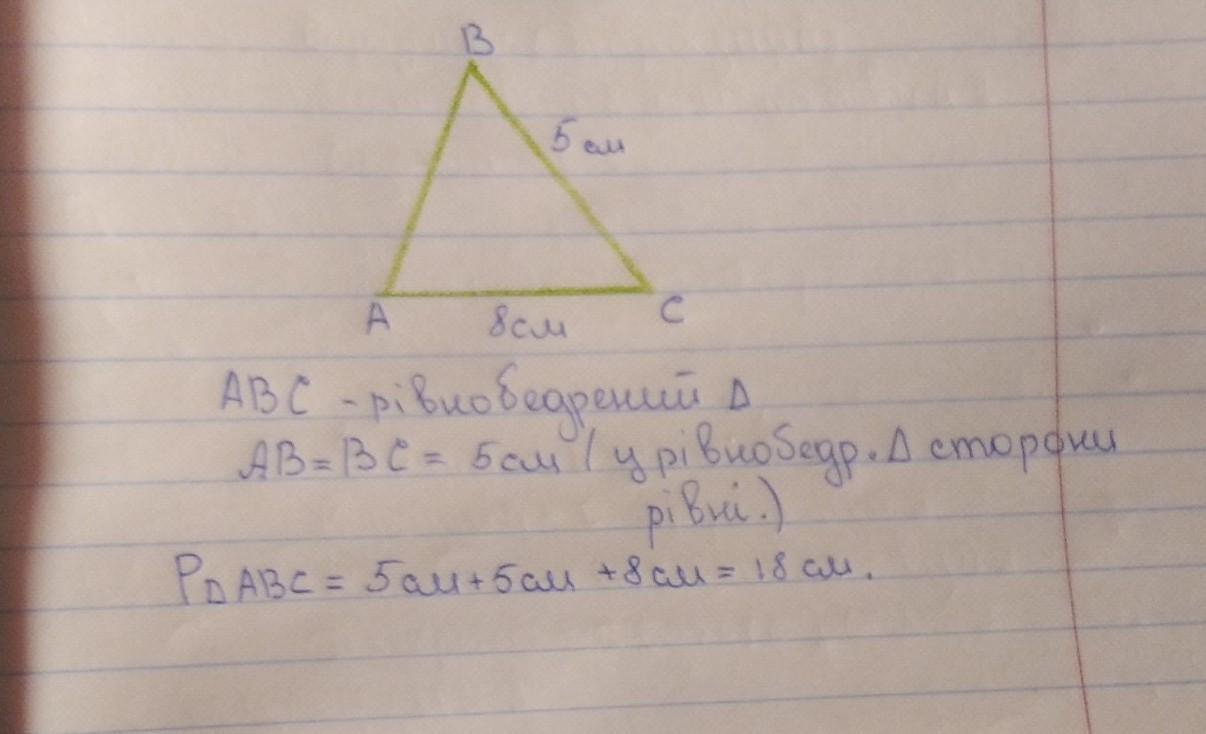 B
5 см
A
8см
C
ABC - рівнобедрений Δ
AB = BC = 5см ( у рівнобедр. Δ сторони
рівні.)
PΔABC = 5см + 5см + 8см = 18 см.